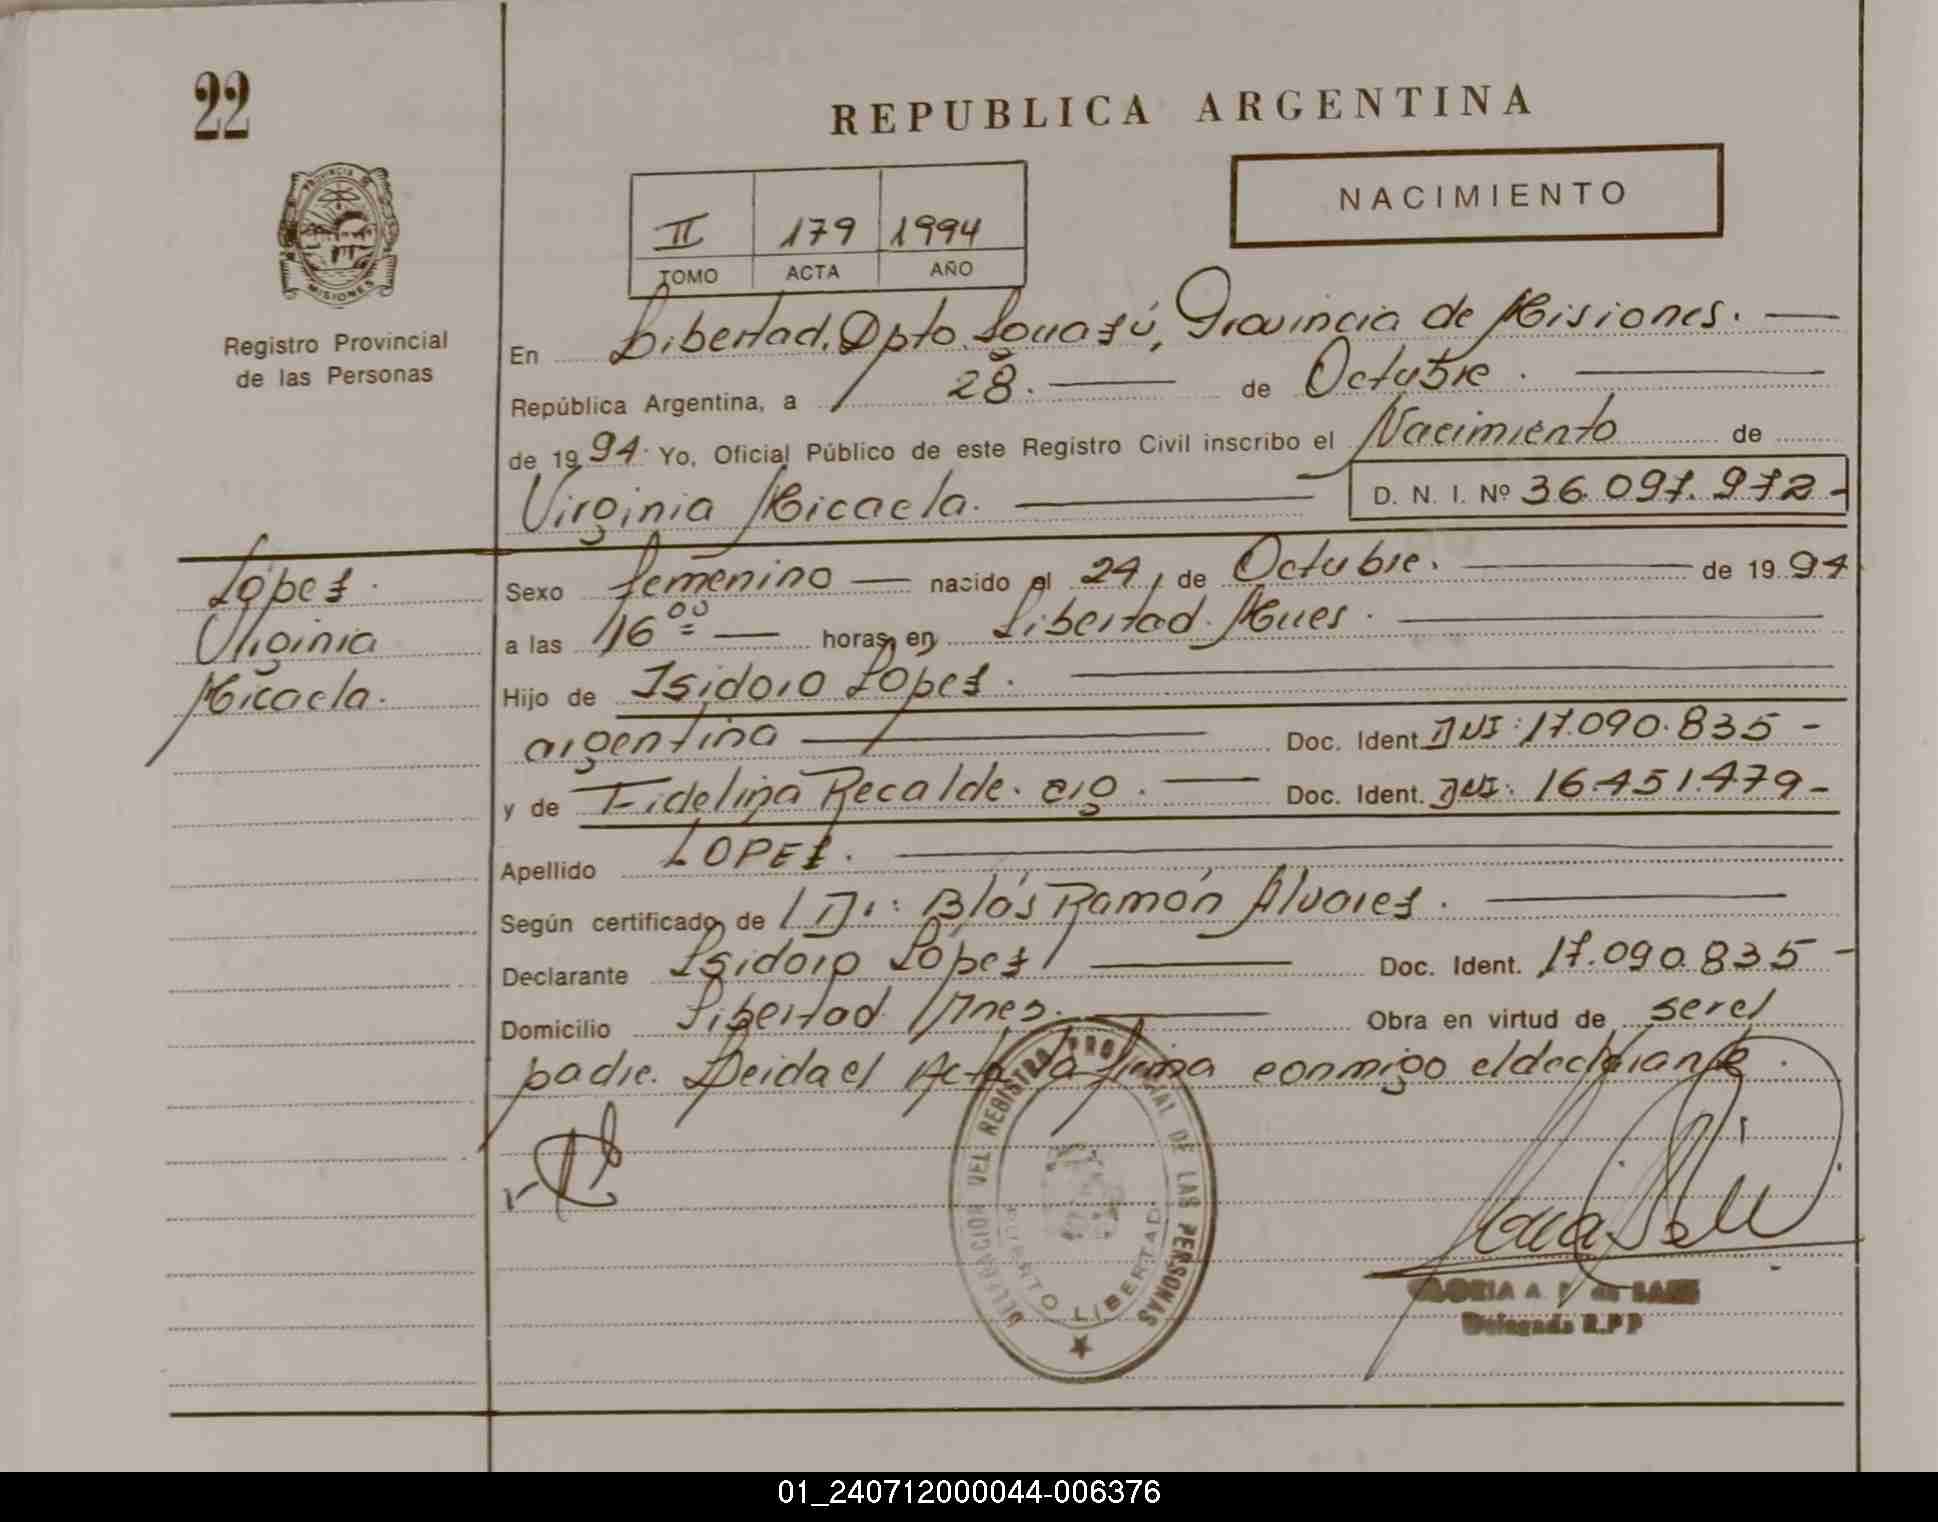 22
REPUBLICA ARGENTINA
NACIMIENTO
PROVINCIA DE
MISIONES
II 179 1994
TOMO ACTA AÑO
Registro Provincial
de las Personas
En Libertad, Dpto. Iguazú, Provincia de Misiones.
República Argentina, a 28. de Octubre.
de 1994. Yo, Oficial Público de este Registro Civil inscribo el Nacimiento de
Virginia Micaela. D. N. I. Nº 36.097.972-
Lópes.
Virginia
Micaela.
Sexo femenino nacido el 24, de Octubre. de 1994
a las 16 00 horas en Libertad. Mnes.
Hijo de Isidoro Lopes.
argentina Doc. Ident. DNI: 17.090.835-
y de Fidelina Recalde. arg. Doc. Ident. DNI: 16.451.479-
Apellido LOPES.
Según certificado de Dr: Blás Ramón Alvares.
Declarante Isidoro Lópes Doc. Ident. 17.090.835-
Domicilio Libertad. Mnes. Obra en virtud de ser el
padre. Leida el Acta la firma conmigo el declarante.
DELEGACION REGISTRO PROVINCIAL DE LAS PERSONAS
PUERTO LIBERTAD
GLORIA A. de
Delegada R.P.P
01_240712000044-006376